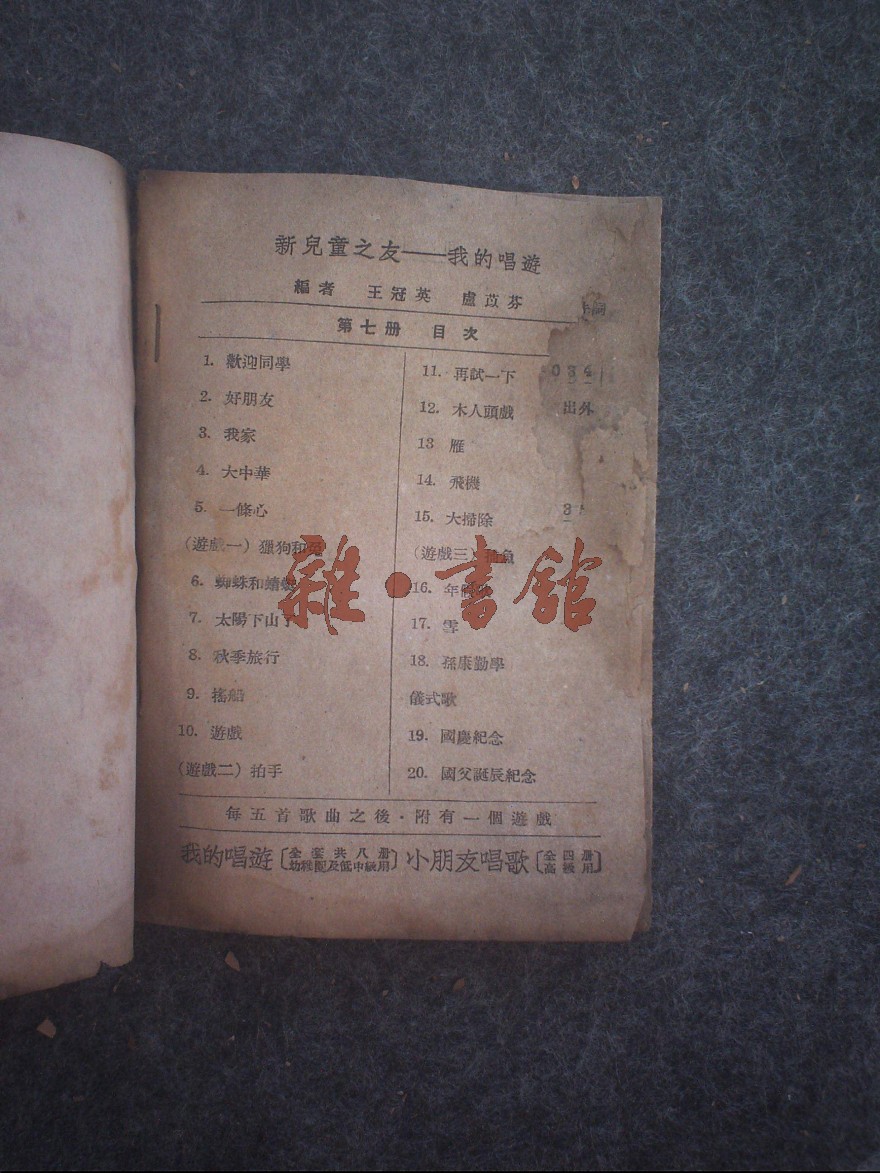 新兒童之友——我的唱遊
編者 王冠英 盧苡芬
詞
第七册 目次
1. 歡迎同學
2. 好朋友
3. 我家
4. 大中華
5. 一條心
(遊戲一) 獵狗和
6. 蜘蛛和蜻蜓
7. 太陽下山了
8. 秋季旅行
9. 搖船
10. 遊戲
(遊戲二) 拍手
11. 再試一下
034
12. 木人頭戲
出外
13 雁
14. 飛機
15. 大掃除
3
(遊戲三) 魚
16. 年
17. 雪
18. 孫康勤學
儀式歌
19. 國慶紀念
20. 國父誕辰紀念
每五首歌曲之後·附有一個遊戲
我的唱遊〔全套共八册 幼稚園及低中級用〕小朋友唱歌〔全四册 高級用〕
雜·書館